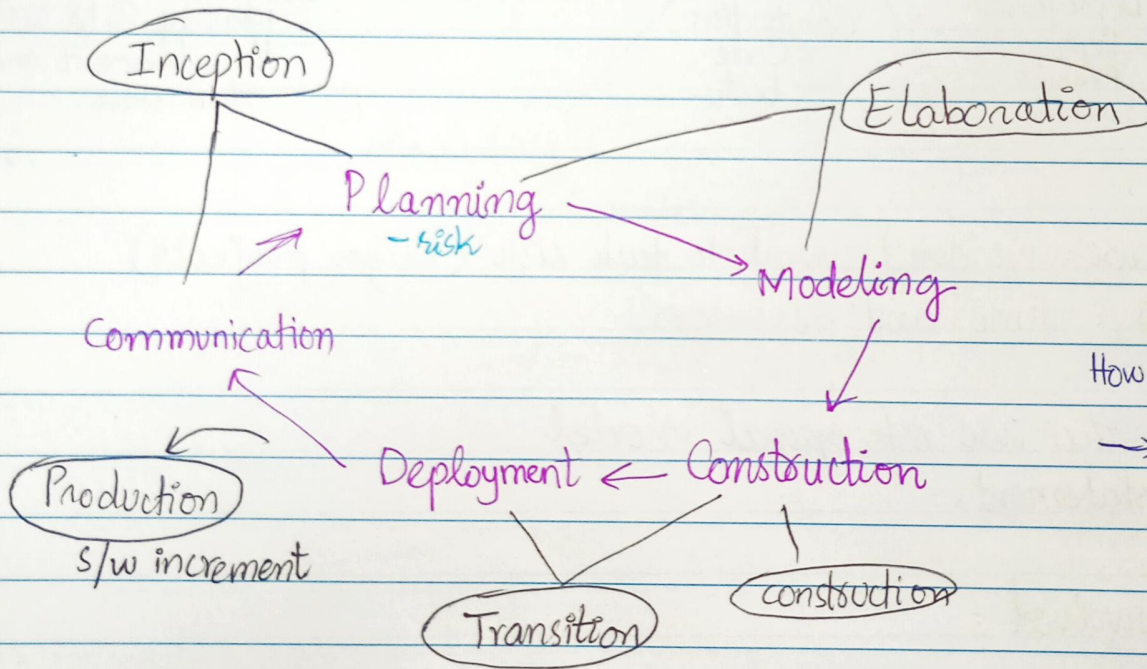 Inception
Elaboration
Planning
- risk
Modeling
Communication
How
Deployment
Construction
Production
s/w increment
construction
Transition